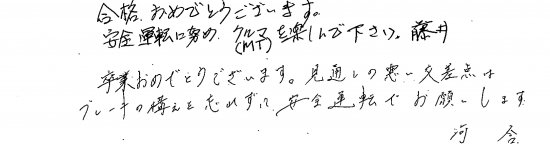 合格、おめでとうございます。
安全運転に努め、クルマ(MT)を楽しんで下さい。藤井
卒業おめでとうございます。見通しの悪い交差点は
ブレーキの構えを忘れずに、安全運転でお願いします
河合